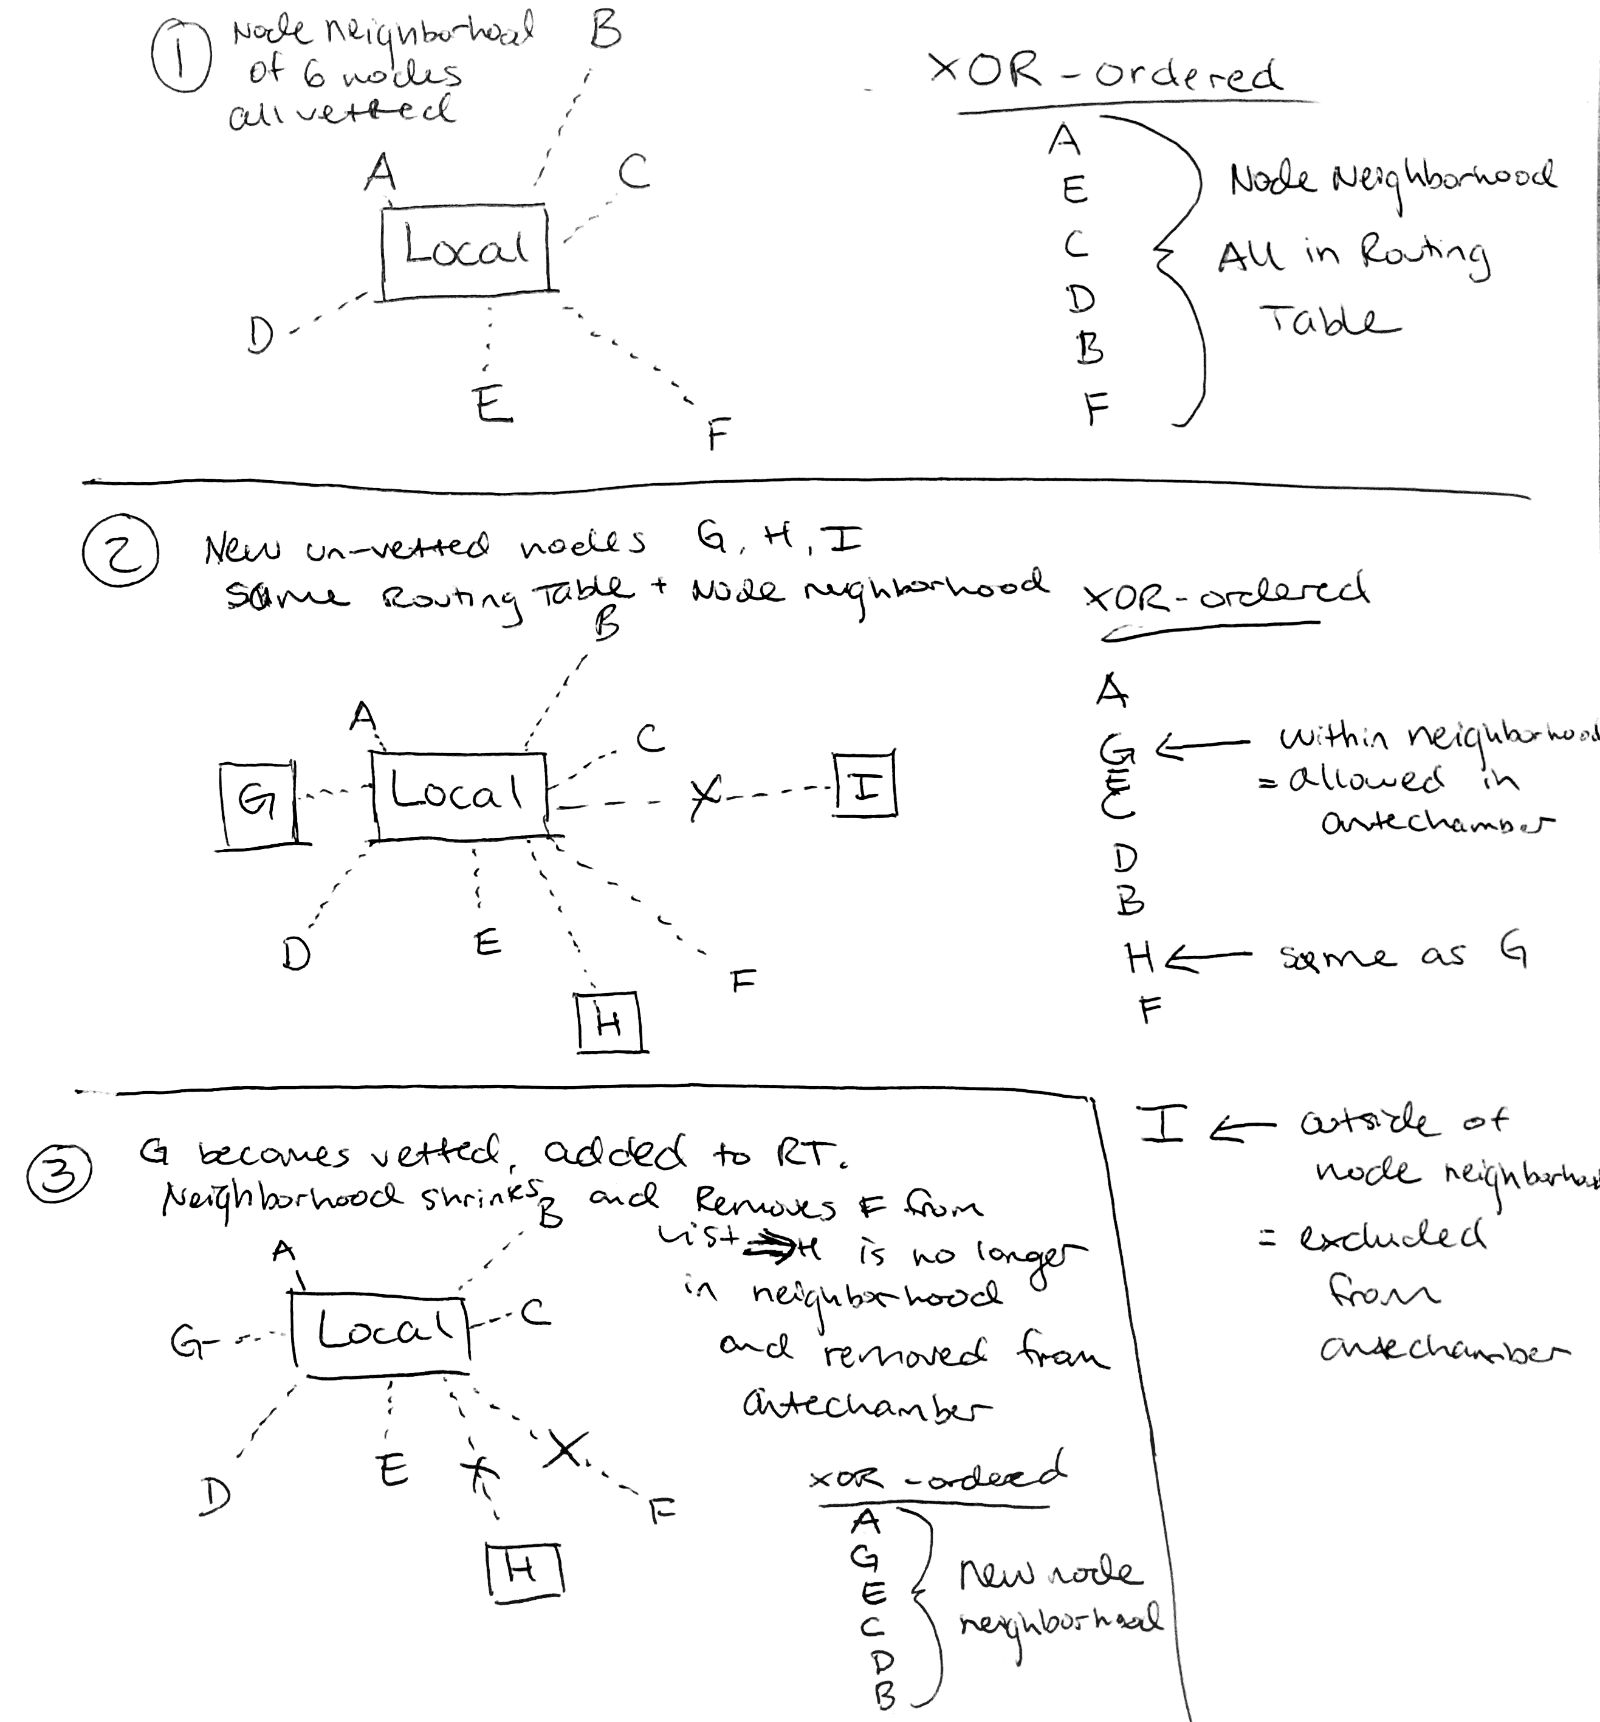 1 Node neighborhood
of 6 nodes
all vetted
B
A
C
Local
D
E
F
XOR-ordered
A
E
C
D
B
F
Node Neighborhood
All in Routing
Table
2 New un-vetted nodes G, H, I
same Routing Table + Node neighborhood
B
A
C
G
Local
X
I
D
E
F
H
XOR-ordered
A
G ← within neighborhood
E
= allowed in
C
antechamber
D
B
H ← same as G
F
I ← outside of
node neighborhood
= excluded
from
antechamber
3 G becomes vetted, added to RT.
Neighborhood shrinks and Removes F from
List ⇒ H is no longer
in neighborhood
and removed from
antechamber
B
A
G
Local
C
D
E
X
X
F
H
XOR-ordered
A
G
E
C
D
B
New node
neighborhood